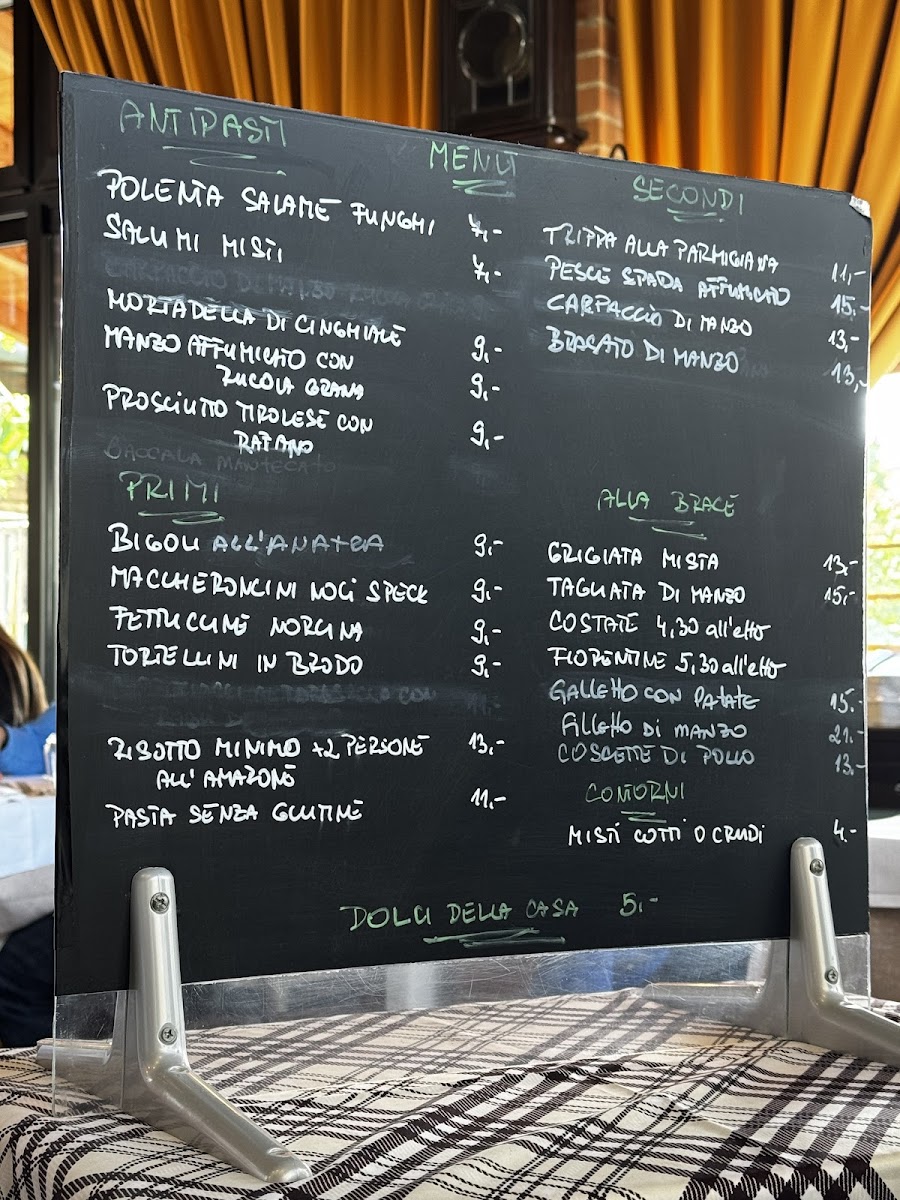 MENU
ANTIPASTI
POLENTA SALAME FUNGHI 7,-
SALUMI MISTI 7,-
MORTADELLA DI CINGHIALE 9,-
MANZO AFFUMICATO CON
RUCOLA GRANA 9,-
PROSCIUTTO TIROLESE CON
RAFANO 9,-
BACCALA MANTECATO
PRIMI
BIGOLI ALL'ANATRA 9,-
MACCHERONCINI NOCI SPECK 9,-
FETTUCCINE NORCINA 9,-
TORTELLINI IN BRODO 9,-
RISOTTO MINIMO x2 PERSONE 13,-
ALL'AMAZONE
PASTA SENZA GLUTINE 11,-
SECONDI
TRIPPA ALLA PARMIGIANA 11,-
PESCE SPADA AFFUMICATO 15,-
CARPACCIO DI MANZO 13,-
BRASATO DI MANZO 13,-
ALLA BRACE
GRIGIATA MISTA 13,-
TAGLIATA DI MANZO 15,-
COSTATE 4,30 all'etto
FIORENTINE 5,30 all'etto
GALLETTO CON PATATE 15.-
FILLETTO DI MANZO 21.-
COSCETTE DI POLLO 13.-
CONTORNI
MISTI COTTI O CRUDI 4.-
DOLCI DELLA CASA 5,-